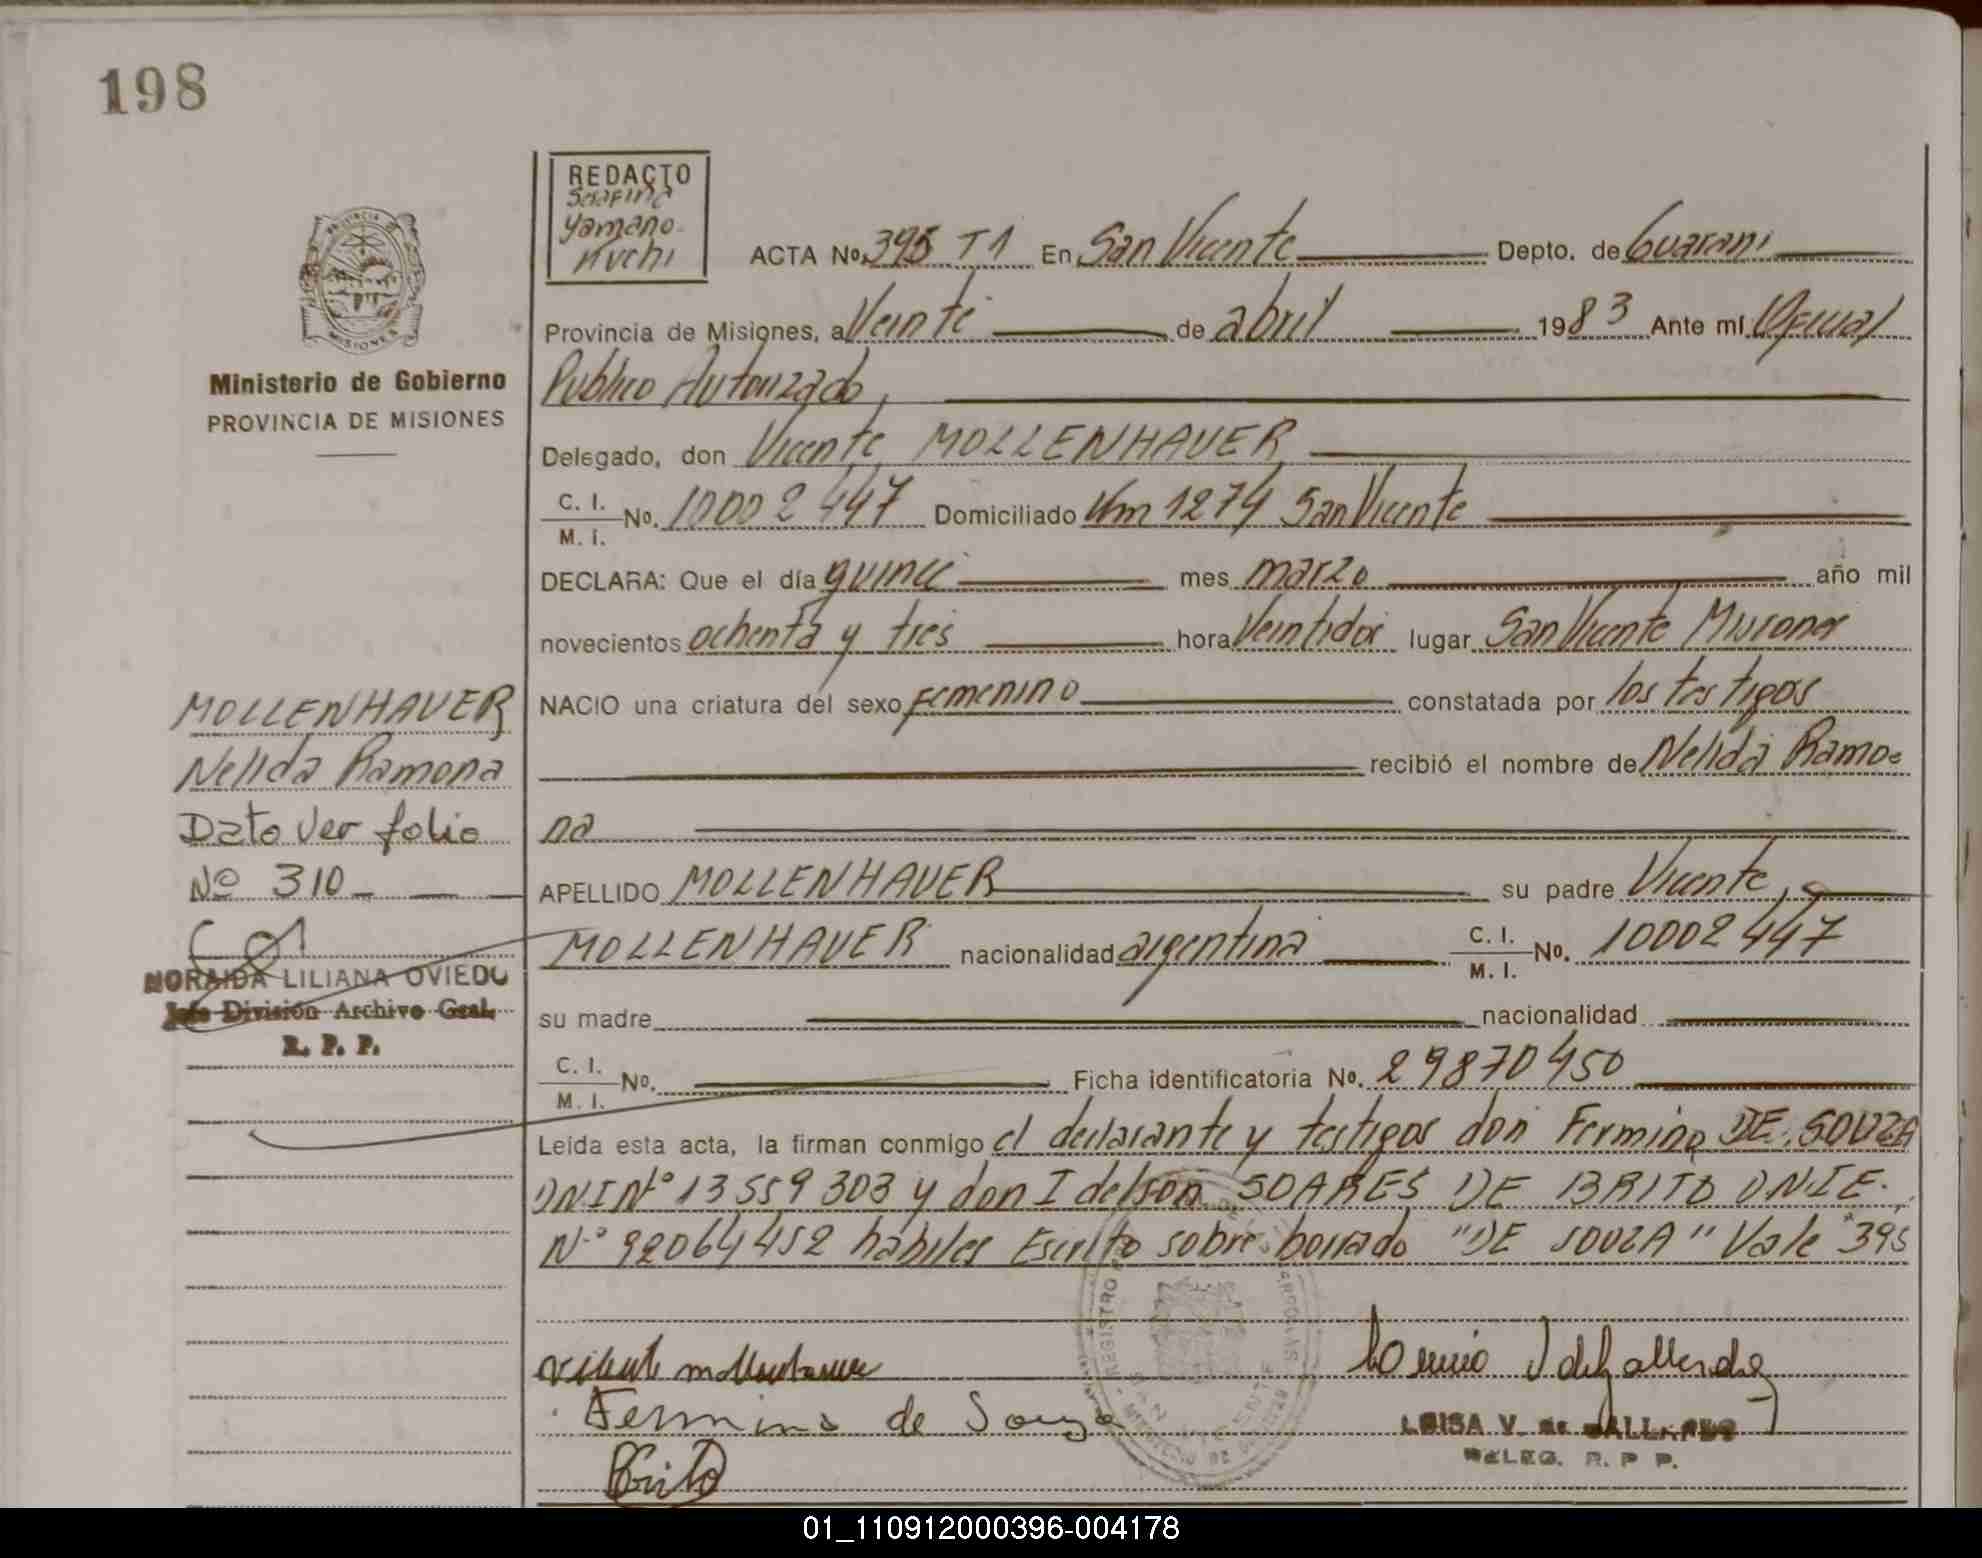 198
REDACTO
Serafina
Yamano-
Kuchi
ACTA No. 395 T1 En San Vicente Depto. de Guarani
Provincia de Misiones, a Veinte de abril 1983 Ante mí Oficial
Publico Autorizado,
Delegado, don Vicente MOLLENHAUER
C. I.
M. I. No. 10002447 Domiciliado Km 1274 San Vicente
DECLARA: Que el día quince mes marzo año mil
novecientos ochenta y tres hora Veintidos lugar San Vicente Misiones
NACIO una criatura del sexo Femenino constatada por los testigos
recibió el nombre de Nelida Ramo-
na
APELLIDO MOLLENHAUER su padre Vicente,
MOLLENHAUER nacionalidad argentina C. I.
M. I. No. 10002447
su madre nacionalidad
C. I.
M. I. No. Ficha identificatoria No. 29870450
Leída esta acta, la firman conmigo el declarante y testigos don Fermino DE SOUZA
DNI Nº 13559303 y don Idelson SOARES DE BRITO DNIE.
Nº 92064452 habiles Escrito sobre borrado "DE SOUZA" Vale 395
Fermino de Souza
Brito
LUISA V. de GALLARDO
DELEG. R. P P.
MISIONES
Ministerio de Gobierno
PROVINCIA DE MISIONES
MOLLENHAUER
Nelida Ramona
Dato ver folio
Nº 310
NORAIDA LILIANA OVIEDO
Jefe División Archivo Gral.
R. P. P.
01_110912000396-004178